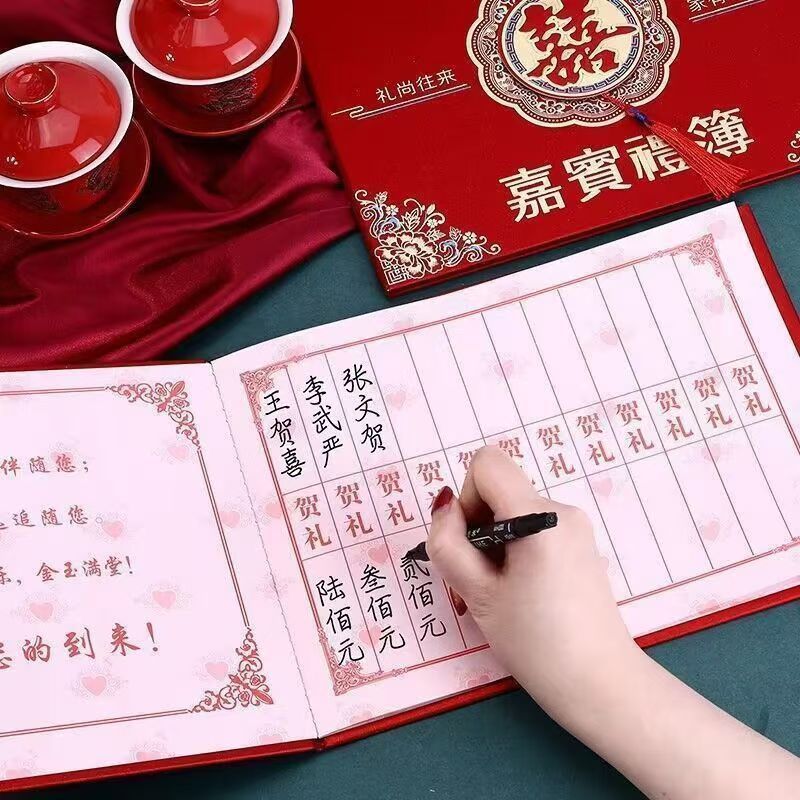 礼尚往来
嘉賓禮簿
伴随您；
追随您。
金玉满堂！
的到来！
王贺喜
李武严
张文贺
贺礼
贺礼
贺礼
贺礼
贺礼
贺礼
贺礼
贺礼
贺礼
贺礼
贺礼
陆佰元
叁佰元
贰佰元